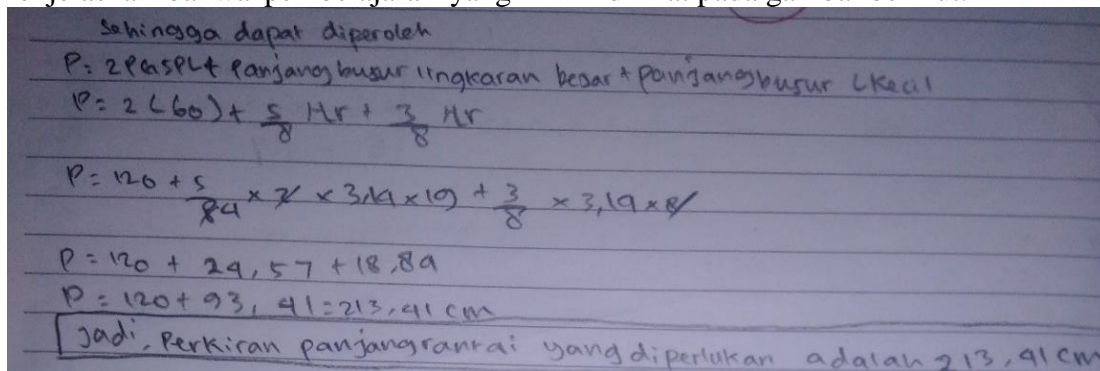 Sehingga dapat diperoleh
P = 2PGSPL + Panjang busur lingkaran besar + panjang busur L kecil
P = 2 (60) + 5/8 Hr + 3/8 Hr
P = 120 + 5/84 × 2 × 3,14 × 19 + 3/8 × 3,14 × 8
P = 120 + 24,57 + 18,84
P = 120 + 93,41 = 213,41 cm
Jadi, Perkiran panjang rantai yang diperlukan adalah 213,41 cm